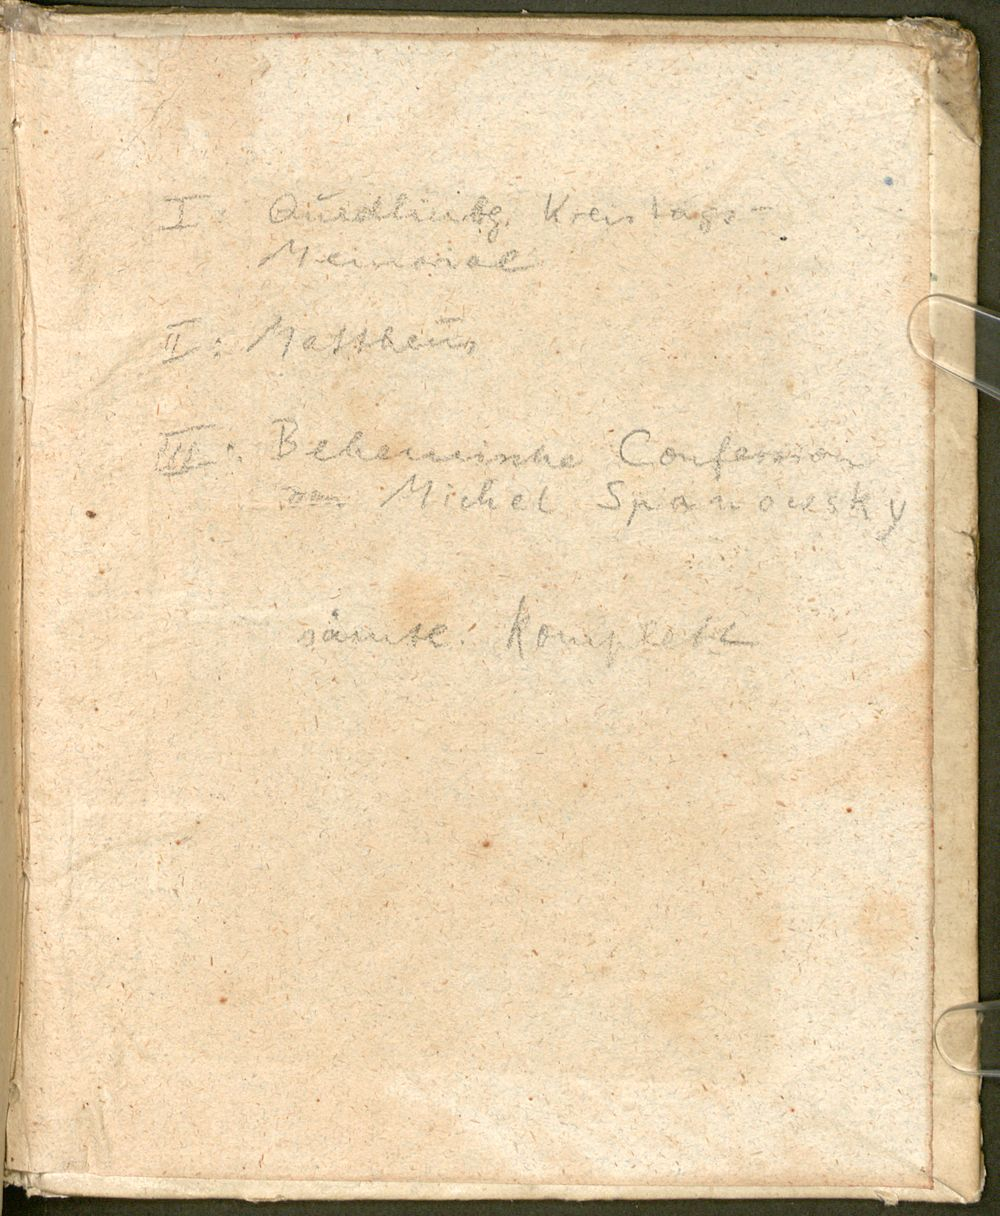 I: Quedlinbg. Kreistags-
Memorial
II: Mattheus
III: Behemische Confession
von Michel Spanowsky
sämtl. Komplett